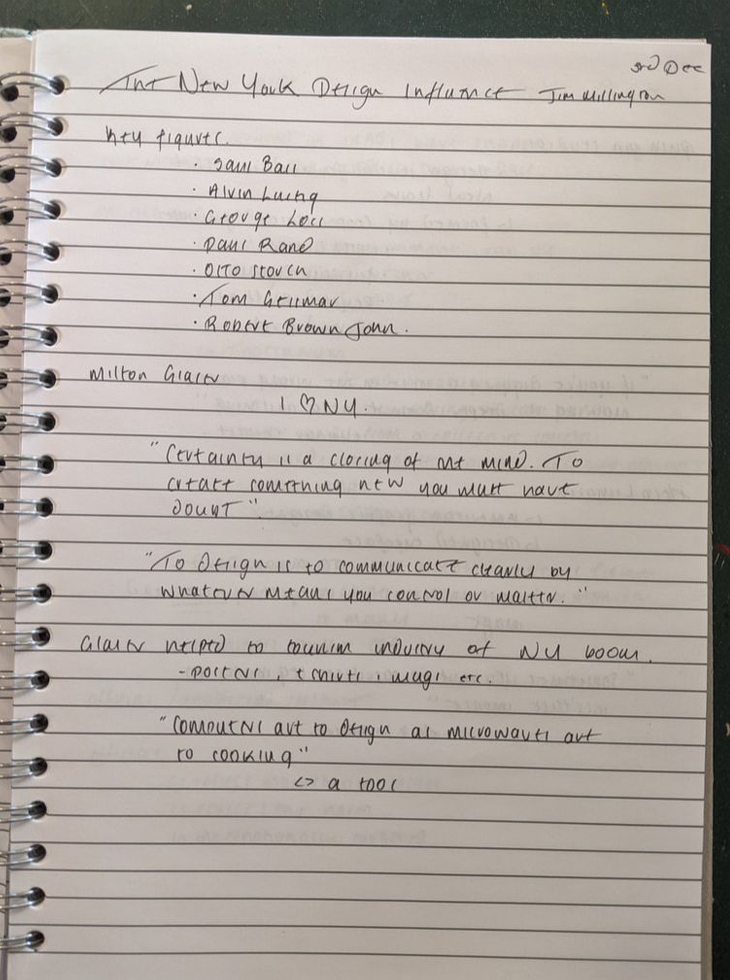 3rd Dec
The New York Design Influence Jim Millington
Key figures.
· Saul Bass
· Alvin Lustig
· George Lois
· Paul Rand
· Otto Storch
· Tom Geismar
· Robert Brown John.
Milton Glaser
I ♡ NY.
"Certainty is a closing of the mind. To
create something new you must have
doubt"
"To Design is to communicate clearly by
whatever means you control or master."
Glaser helped to tourism industry of NY boom.
- posters, t shirts, mugs etc.
"Computers are to design as microwaves are
to cooking"
<> a tool